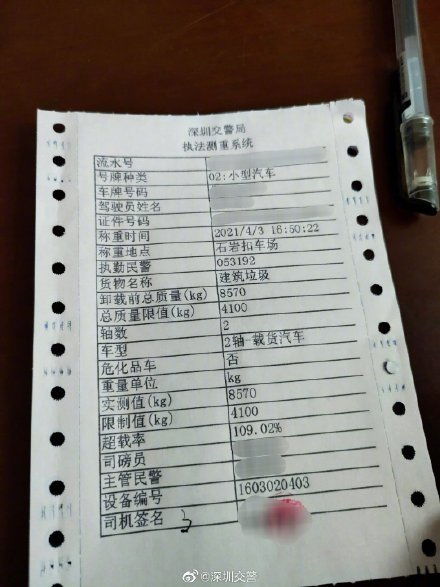 深圳交警局
执法测重系统
流水号
号牌种类 02:小型汽车
车牌号码
驾驶员姓名
证件号码
称重时间 2021/4/3 16:50:22
称重地点 石岩扣车场
执勤民警 053192
货物名称 建筑垃圾
卸载前总质量(kg) 8570
总质量限值(kg) 4100
轴数 2
车型 2轴-载货汽车
危化品车 否
重量单位 kg
实测值(kg) 8570
限制值(kg) 4100
超载率 109.02%
司磅员
主管民警
设备编号 1603020403
司机签名
@深圳交警